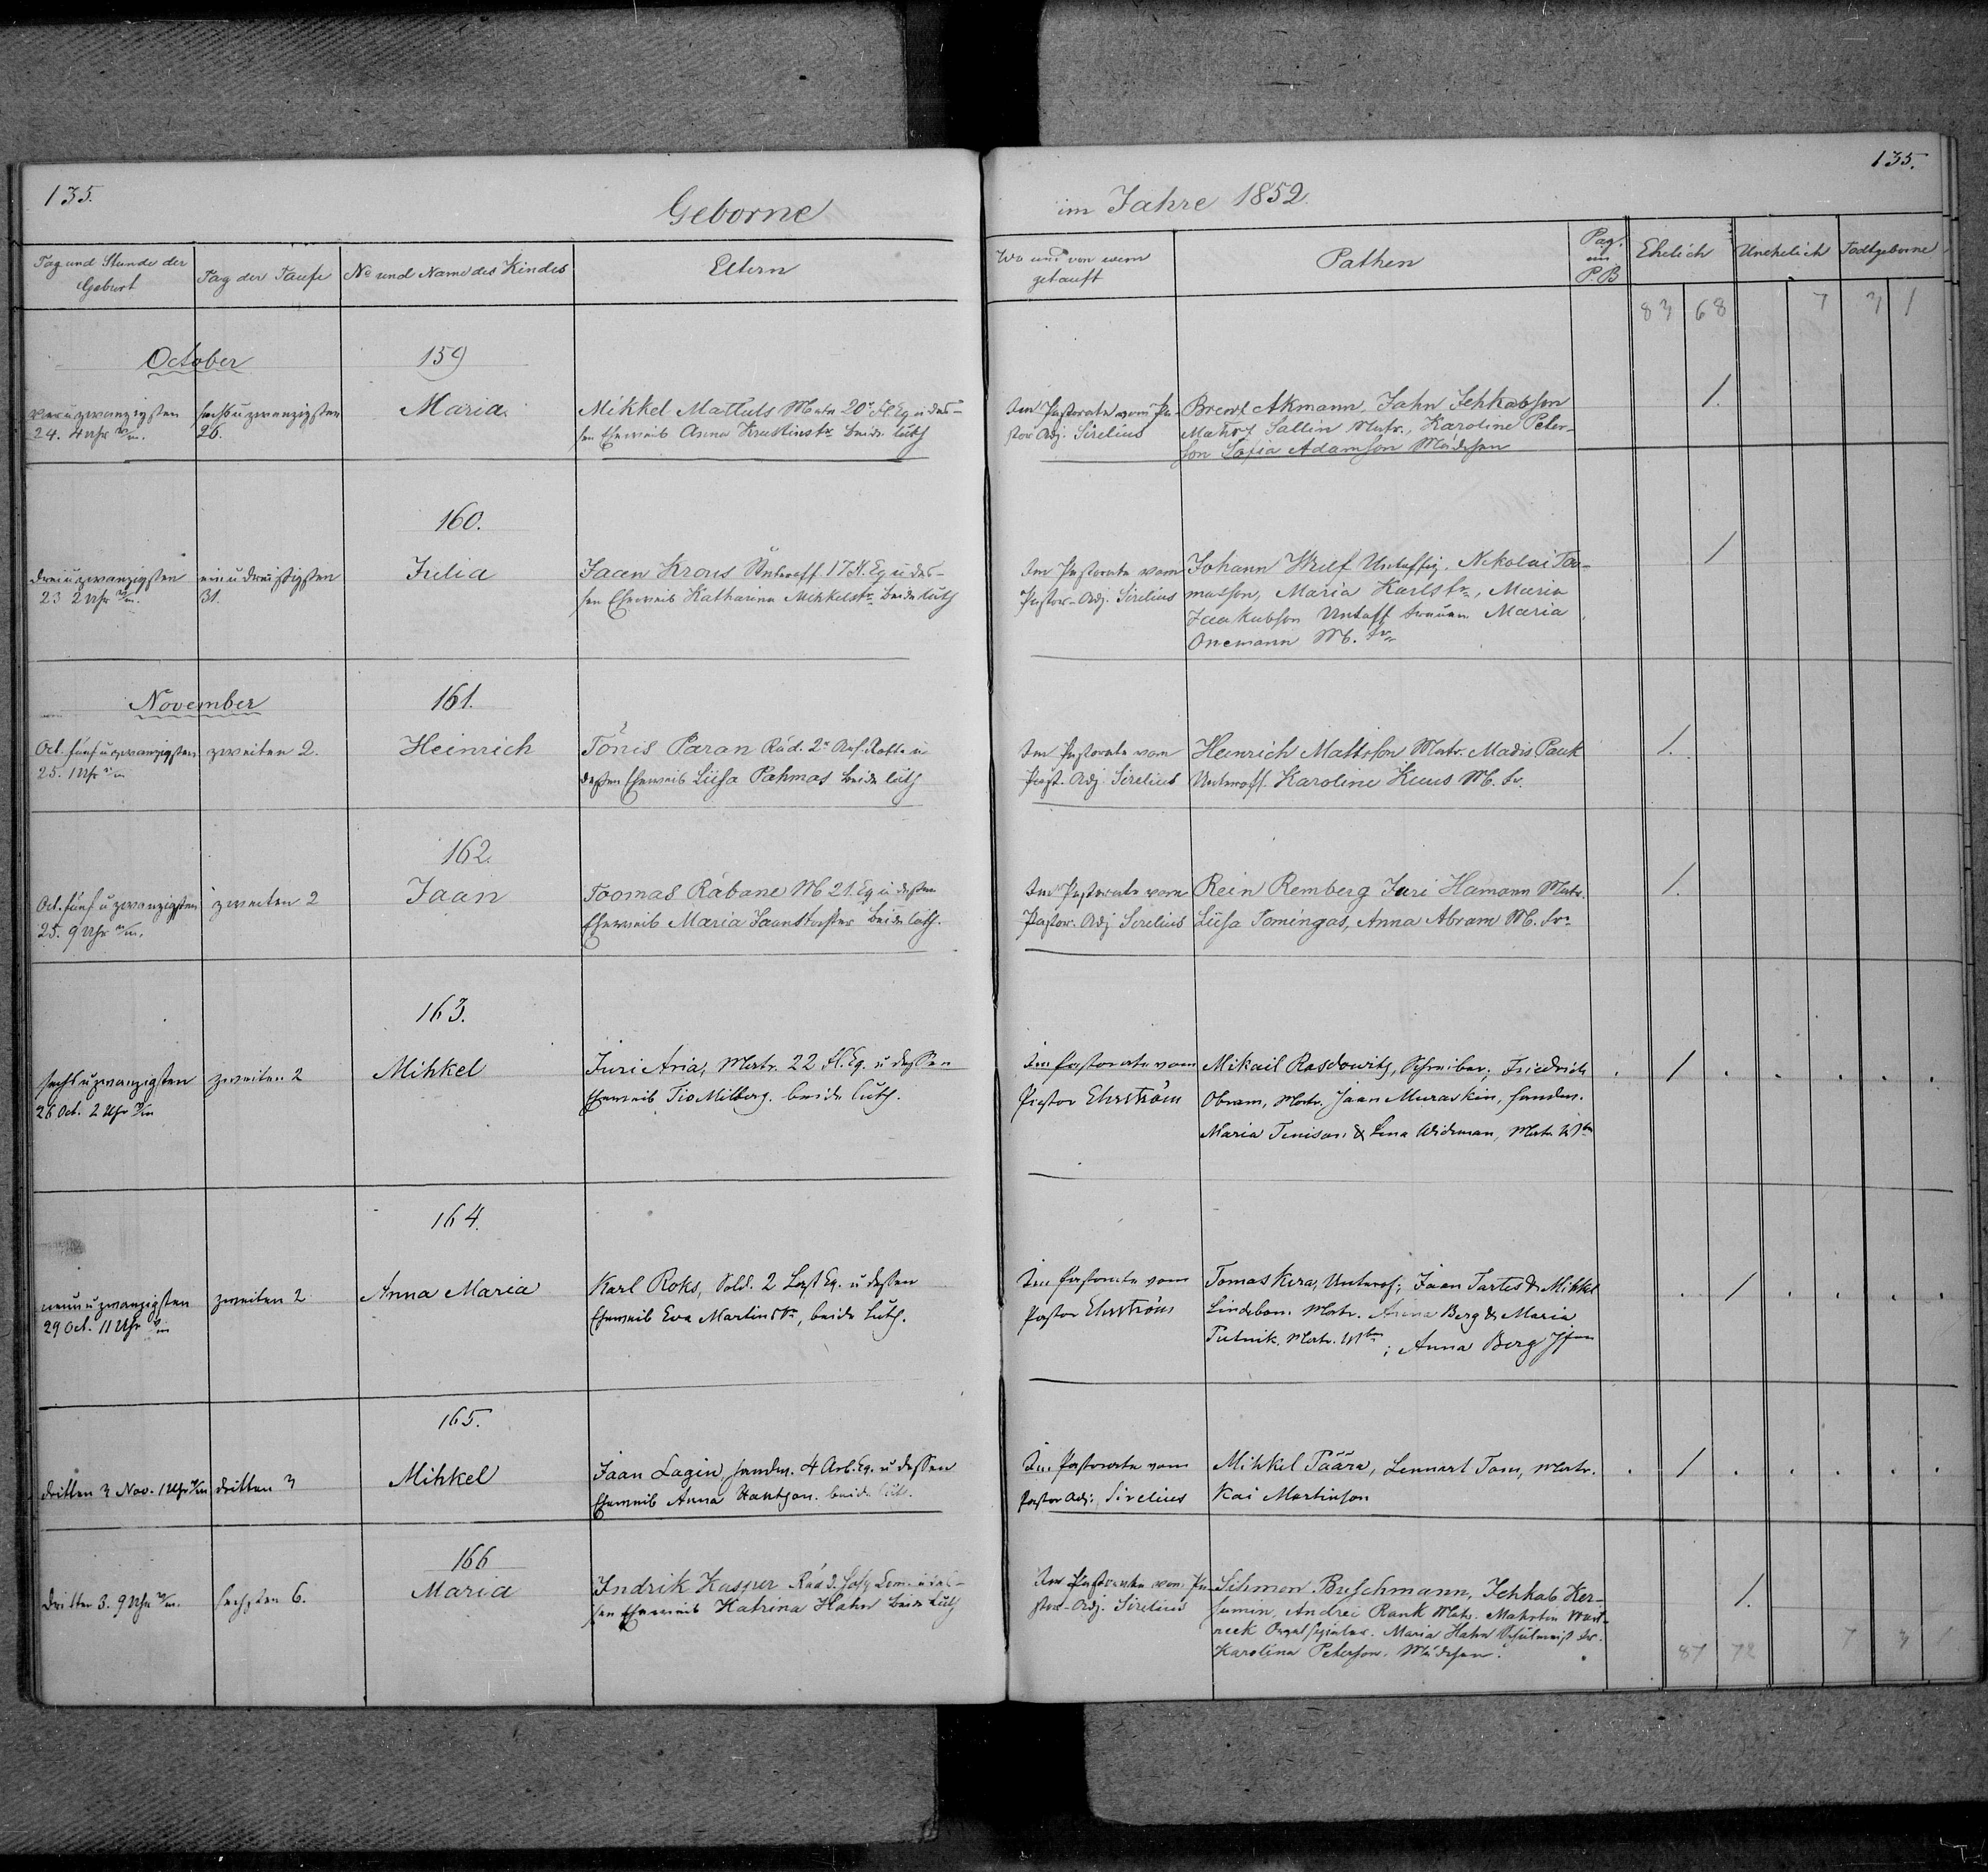 135.
Geborne
im Jahre 1852.
135.
Tag und Stunde der Geburt
Tag der Taufe
No und Name des Kindes
Eltern
Wo und von wem getauft
Pathen
Pag. im P.B
Ehelich
Unehelich
Todtgeborne
83 68 7 3 1
October
159
vierundzwanzigsten
24. 4 Uhr
sechsuzwanzigsten
26.
Maria.
Mikkel Mattuls Matr. 20r Fl. Eq u des-
sen Eheweib Anna beide luth
Im Pastorate vom Pa-
stor Adj. Sirelius
Brent Akmann, Jahn Jehkabson
Sallin Matr., Karoline Peter-
son Sofia Adamson Mädchen
1.
160.
dreiuzwanzigsten
23 2 Uhr
einudreißigsten
31.
Julia
Jaan Krons Unteroff. 17 Fl. Eq u des-
sen Eheweib Katharina Mihkelstr. beide luth
Im Pastorate vom
Pastor-Adj. Sirelius
Johann Nikolai To-
masson, Maria Karlstr., Maria
Jaakubson Untoff frauen Maria
Onemann M. fr
1
November
161.
Oct. fünfuzwanzigsten
25. 1 Uhr
zweiten 2.
Heinrich
Tönis Paran Räd. 2r u
dessen Eheweib Liisa Pahmas beide luth
Im Pastorate vom
Past. Adj. Sirelius
Heinrich Mattson Matr. Madis Pauk
Unteroff. Karoline Kuus M. fr.
1.
162.
Oct. fünfuzwanzigsten
25. 9 Uhr
zweiten 2
Jaan
Toomas Räbane M 21. Eq u dessen
Eheweib Maria Jaanstochter beide luth.
Im Pastorate vom
Pastor. Adj Sirelius
Rein Remberg Juri Hamann Matr.
Liisa Tomingas, Anna Abram M. fr
1.
163.
sechsuzwanzigsten
26 Oct. 2 Uhr
zweiten 2
Mihkel
Juri Aria, Matr. 22 Fl. Eq. u dessen
Eheweib Tio Milberg. beide luth.
Im Pastorate vom
Pastor Ehrström
Mikail Rasdowitz, Schreiber, Friedrich
Obram, Matr. Jaan Muraskin,
Maria Tenison & Lena Wideman, Matr. Wbr
1
164.
neunuzwanzigsten
29 Oct. 11 Uhr
zweiten 2
Anna Maria
Karl Roks, Sold. 2 Last Eq. u dessen
Eheweib Eva Martinstr, beide luth.
Im Pastorate vom
Pastor Ehrström
Tomas Kera, Unterof; Jaan Tartes & Mihkel
Lindebom Matr. Anna Berg & Maria
Putnik. Matr. Wbr; Anna Berg
1
165.
dritten 3 Nov. 1 Uhr
dritten 3
Mihkel
Jaan Lagin, 4 Arb. Eq. u dessen
Eheweib Anna Hantson. beide luth.
Im Pastorate vom
Pastor Adj. Sirelius
Mihkel Päära, Lennart Tom, Matr.
Kai Martinson
1
166
dritten 3. 9 Uhr
sechsten 6.
Maria
Indrik Kasper u des-
sen Eheweib Katrina Hahn beide luth
Im Pastorate vom Pa-
stor-Adj. Sirelius
Sihmon Breschmann, Jehkab Ker-
sumin, Andrei Rank Matr. Mahrtin
Maria Hahn
Karolina Peterson. Mädchen.
1.
87 72 7 3 1